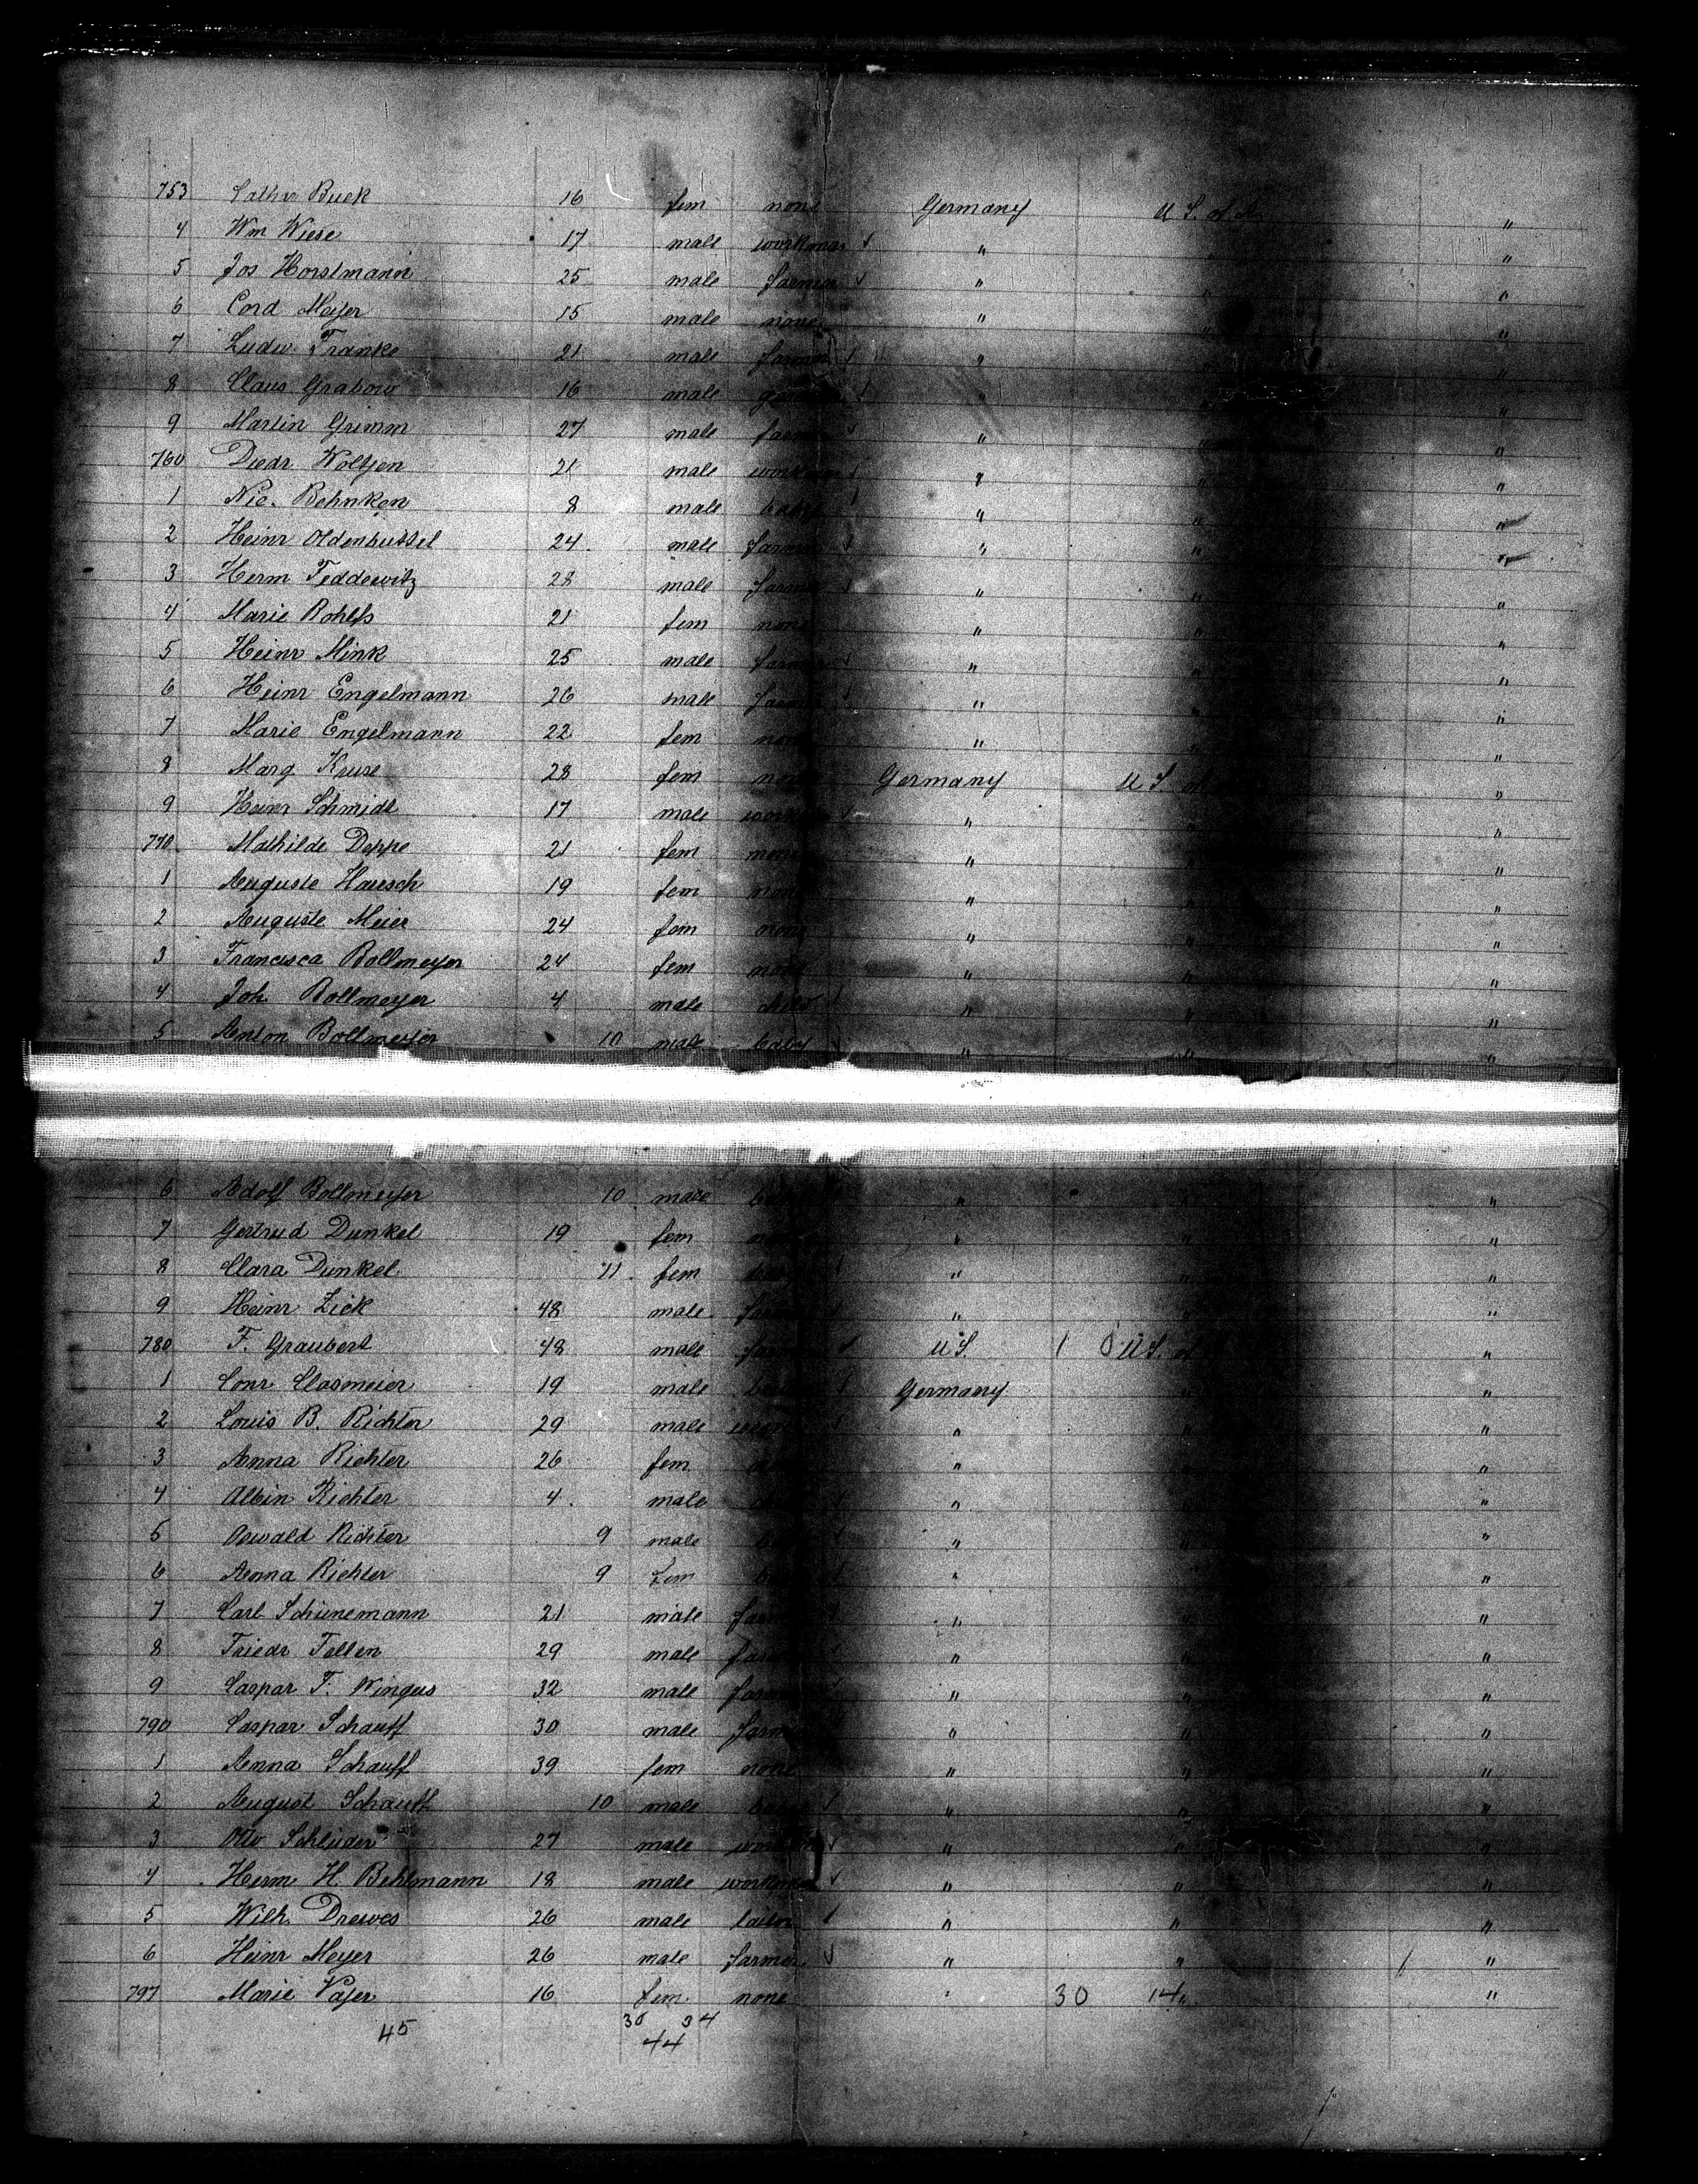 753 Cathr Buck 16 fem none Germany U S. of A. "
4 Wm Wiese 17 male workman " " "
5 Jos Horstmann 25 male farmer " " "
6 Cord Meyer 15 male none " " "
7 Ludw. Franke 21 male farmer " " "
8 Claus Grabow 16 male " " "
9 Martin Grimm 27 male farmer " " "
760 Diedr Woltjen 21 male workman " " "
1 Nic. Behnken 8 male " " "
2 Heinr Oldenbuttel 24 male farmer " " "
3 Herm Teddewitz 28 male farmer " " "
4 Marie Rohlfs 21 fem none " " "
5 Heinr Mink 25 male farmer " " "
6 Heinr Engelmann 26 male farmer " " "
7 Marie Engelmann 22 fem none " " "
8 Marg Kruse 28 fem none Germany U S. of "
9 Heinr Schmidt 17 male workman " " "
770 Mathilde Deppe 21 fem none " " "
1 Auguste Hausch 19 fem none " " "
2 Auguste Meier 24 fem none " " "
3 Francisca Bollmeyer 24 fem none " " "
4 Joh Bollmeyer 4 male child " " "
5 Anton Bollmeyer 10 male baby " " "
6 Adolf Bollmeyer 10 male baby " " "
7 Gertrud Dunkel 19 fem none " " "
8 Clara Dunkel 11 fem " " "
9 Heinr Zick 48 male " " "
780 F. Graubert 48 male U S. U S. of "
1 Conr Clasmeier 19 male Germany " "
2 Louis B. Richter 29 male " " "
3 Anna Richter 26 fem " " "
4 Albin Richter 4 male " " "
5 Oswald Richter 9 male " " "
6 Anna Richter 9 fem " " "
7 Carl Schünemann 21 male farmer " " "
8 Friedr Tellen 29 male farmer " " "
9 Caspar F. Wingus 32 male farmer " " "
790 Caspar Schauff 30 male farmer " " "
1 Anna Schauff 39 fem none " " "
2 August Schauff 10 male baby " " "
3 Otto Schlüder 27 male workman " " "
4 Herm H. Behlmann 18 male workman " " "
5 Wilh. Drewes 26 male tailor " " "
6 Heinr Meyer 26 male farmer " " "
797 Marie Vajer 16 fem. none " 30 14 "
45 30 34
44